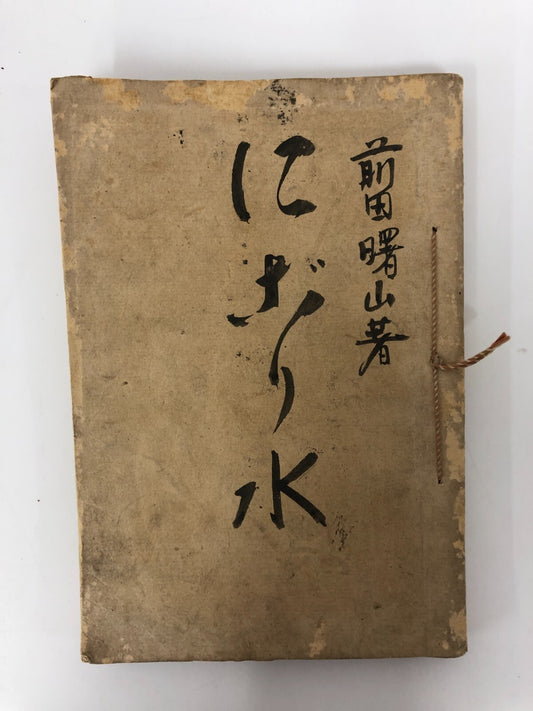 前田曙山著
にごり水